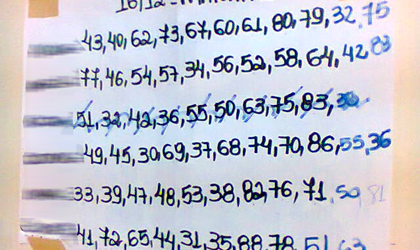 16/12
43,40,62,73,67,60,61,80,79,32,75
77,46,54,57,34,56,52,58,64,42,83
51,32,42,36,55,50,63,75,83,
49,45,30,69,37,68,74,70,86,55,36
33,39,47,48,53,38,82,76,71,50,81
41,72,65,44,31,35,88,78,51,63